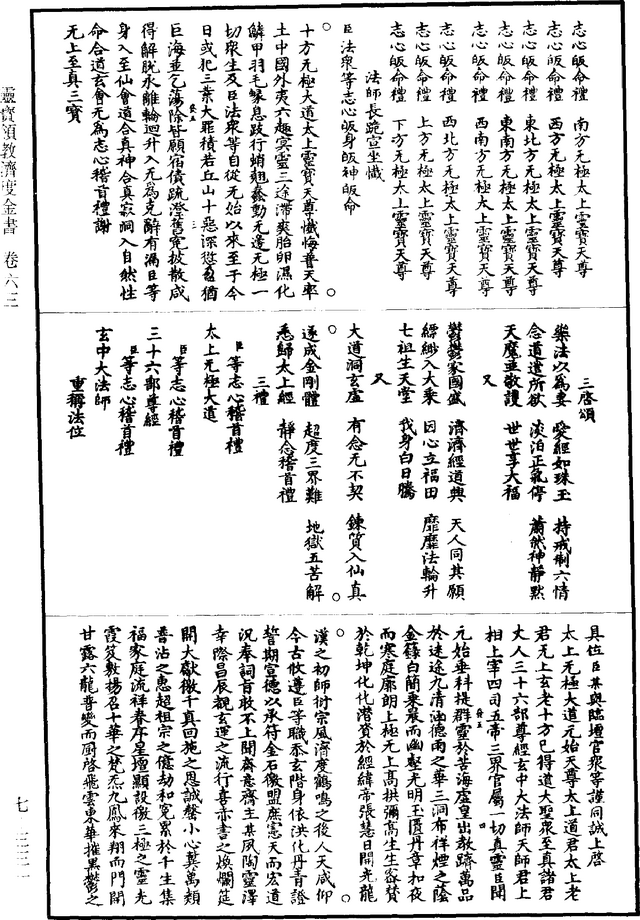 靈寶領教濟度金書 卷六三
志心皈命禮 南方无極太上靈寶天尊
志心皈命禮 西方无極太上靈寶天尊
志心皈命禮 東北方无極太上靈寶天尊
志心皈命禮 東南方无極太上靈寶天尊
志心皈命禮 西南方无極太上靈寶天尊
志心皈命禮 西北方无極太上靈寶天尊
志心皈命禮 上方无極太上靈寶天尊
志心皈命禮 下方无極太上靈寶天尊
法師長跪宣坐懺
臣法衆等志心皈身皈神皈命
十方无極大道太上靈寶天尊懺悔普天率
土中國外夷六趣冥靈三途滯爽胎卵濕化
鱗甲羽毛蠉息跂行蛸翹蠢動无邊无極一
切衆生及臣法衆等自從无始以來至于今
日或犯三業大罪積若丘山十惡深愆盈猶
巨海並乞蕩除皆願宿債䟽澄舊冤披散咸
得解脫永離輪迴升入无爲克辭有漏臣等
身入至仙會道合真神合真寂洞入自然性
命合道玄會无爲志心稽首禮謝
无上至真三寶
三啓頌
樂法以爲妻 愛經如珠玉 持戒制六情
念道遣所欲 淡泊正氣停 蕭然神靜默
天魔並敬護 世世享大福
又
鬱鬱家國盛 濟濟經道興 天人同其願
縹緲入大乘 因心立福田 靡靡法輪升
七祖生天堂 我身白日騰
又
大道洞玄虛 有念无不契 鍊質入仙真
遂成金剛體 超度三界難 地獄五苦解
悉歸太上經 靜念稽首禮
三禮
臣等志心稽首禮
太上无極大道
臣等志心稽首禮
三十六部尊經
臣等志心稽首禮
玄中大法師
重稱法位
具位臣某與臨壇官衆等謹同誠上啓
太上无極大道元始天尊太上道君太上老
君无上玄老十方已得道大聖衆至真諸君
丈人三十六部尊經玄中大法師天師君上
相上宰四司五帝三界官屬一切真靈臣聞
元始垂科提群靈於苦海虛皇出教躋萬品
於迷途九清涵德雨之華三洞布祥煙之蔭
金籙白簡來晨而幽壑光明玉匱丹章和夜
而寒庭廓朗上極无上高拱彌高生生咨賛
於乾坤化化潛資於經緯帝張慧日開光龍
漢之初師衍宗風濟度鶴鳴之後人天咸仰
今古攸遵臣等職忝玄階身依洪化丹青證
誓期宣德以承符金石徼盟庶憲天而宏道
況奉詞旨敢不上聞齋意齋主某夙陶靈澤
幸際昌辰覩玄運之流行喜亦書之煥爛筵
開大獻徼千真回施之恩誠罄小心冀萬類
普沾之惠超祖宗之億劫和冤累於千生集
福家庭流祥眷序星壇顯設徼三極之靈光
霞笈敷揚召十華之梵炁九鳳來翔而門開
甘露六龍晉變而厨啓飛雲東華摧黑鬱之
七 三三一